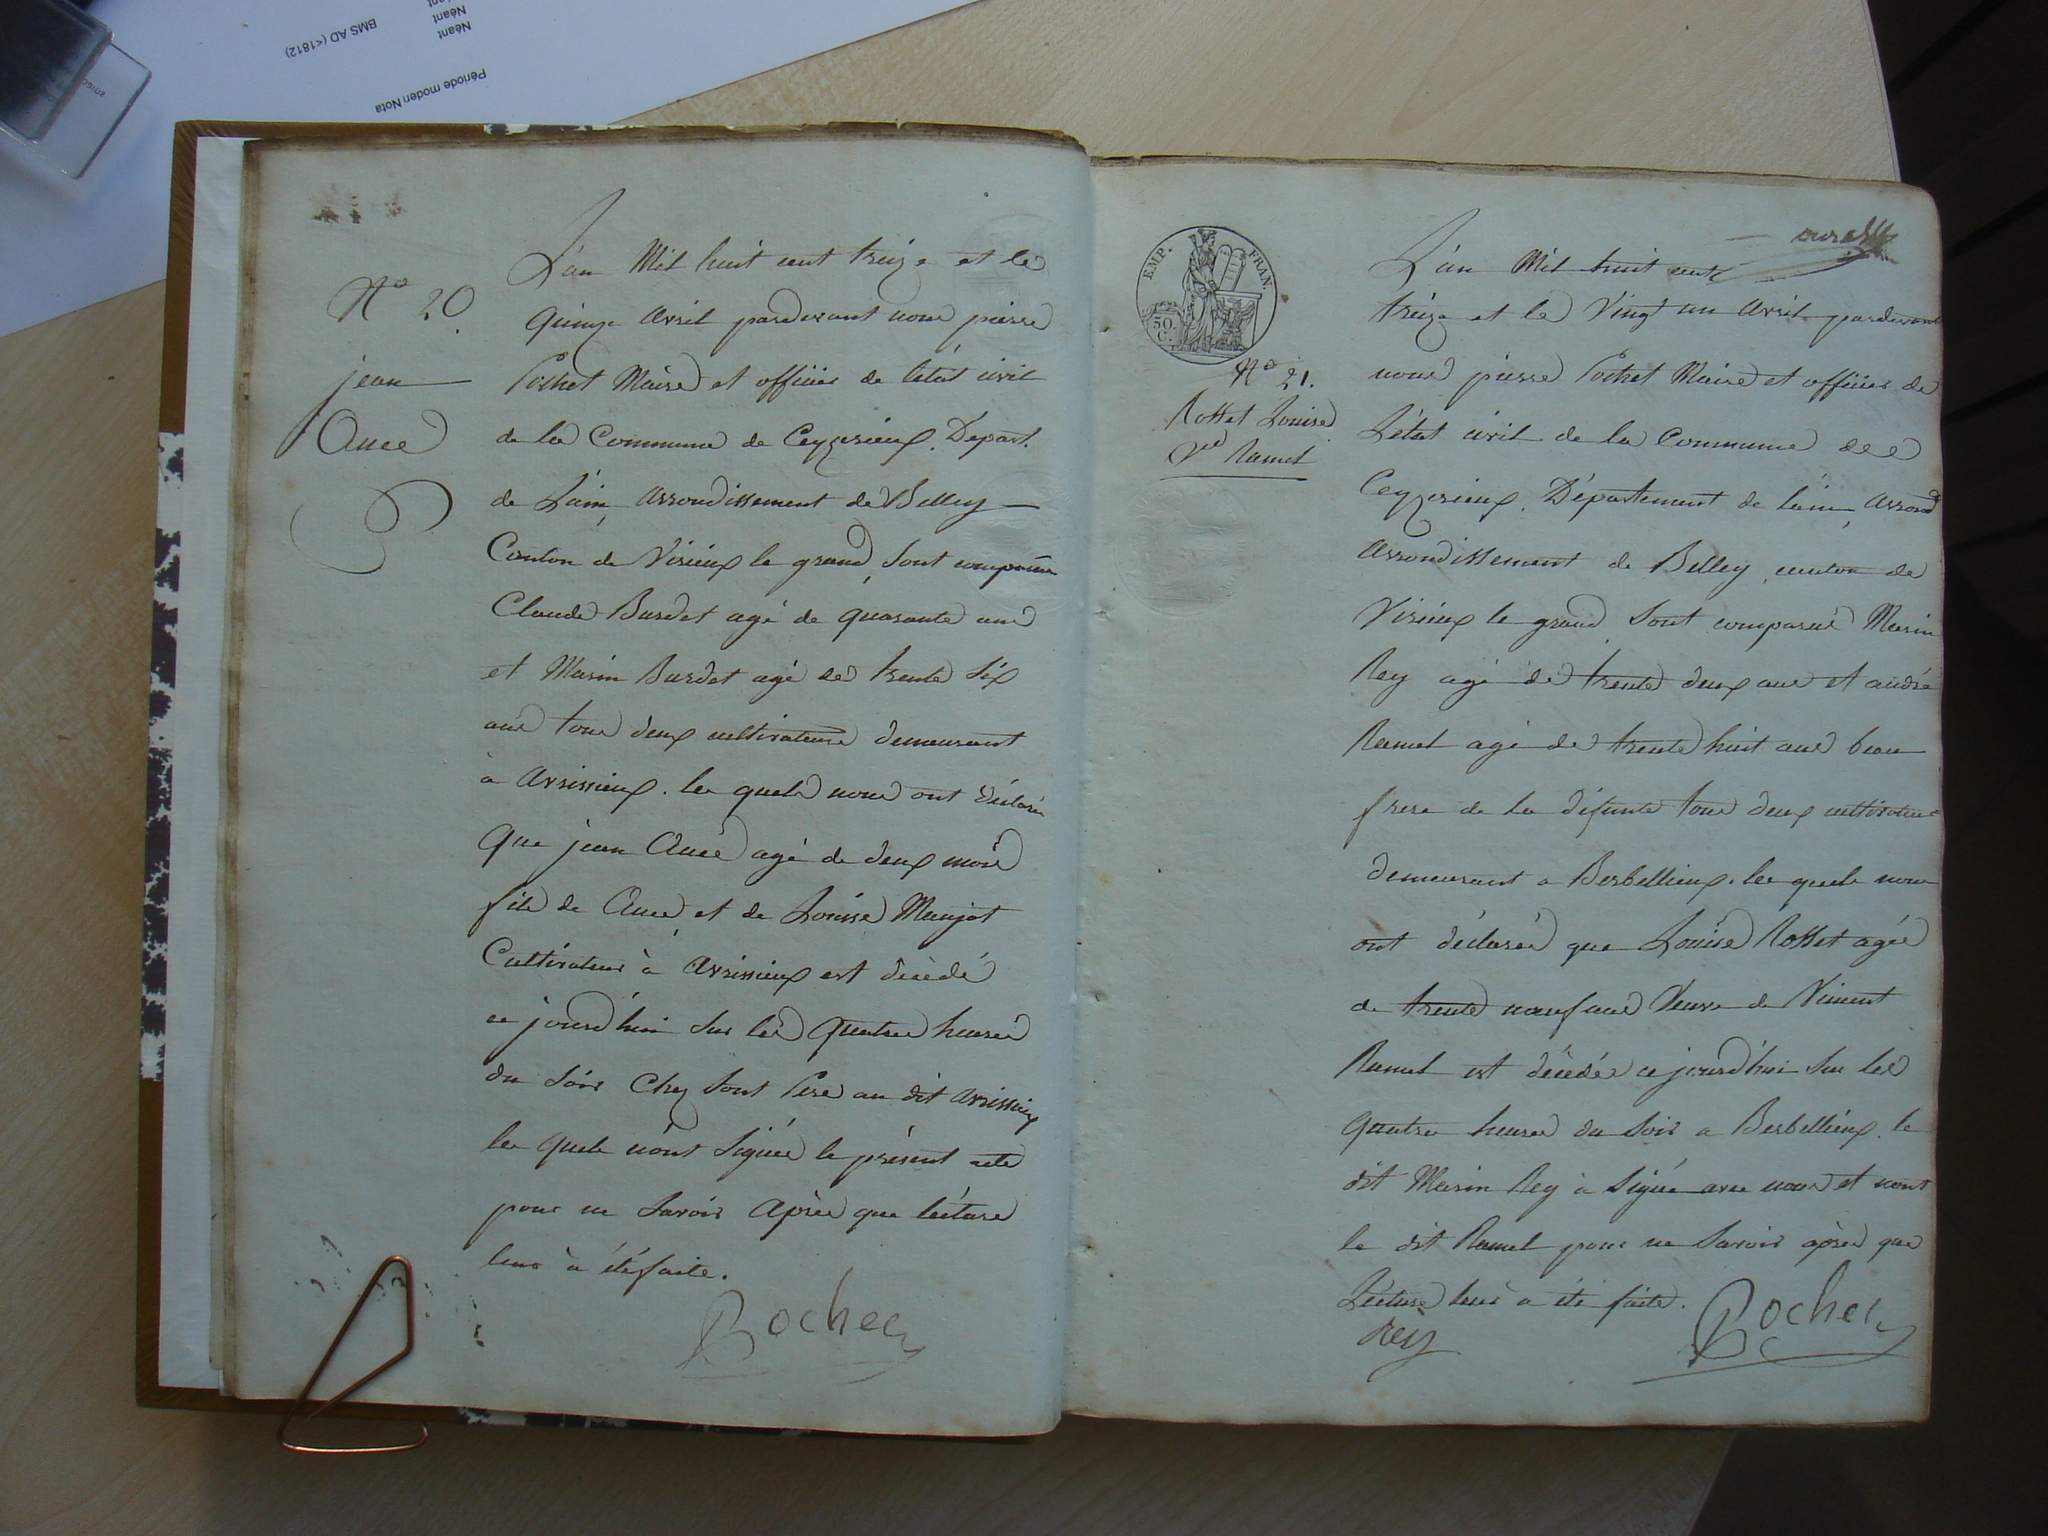 Néant
Néant
BMS AD (<1812)
Période moden Nota
L'an Mil huit cent treize et le
N° 20
quinze avril pardevant nous pierre
jean
Pochet Maire et officier de l'état civil
Ancé
de la Commune de Ceyzerieux. Depart.
de L'ain, arrondissement de Belley
Canton de Virieux le grand, Sont comparus
Claude Burdet agé de quarante ans
et Marin Burdet agé de trente Six
ans tous deux cultivateurs demeurant
à avrissieux. les quels nous ont déclaré
que jean Ancé agé de deux mois
fils de Ancé, et de Louise Manjot
Cultivateur à avrissieux est décédé
ce jourd'hui Sur les quatre heures
du Soir Chez Sont Pere au dit avrissieux
les quels n'ont Signés le présent acte
pour ne Savoir Après que lécture
leur à été faite.
Pochet
EMP. FRAN.
50 C.
L'an Mil huit cent
treize et le Vingt un avril pardevant
N° 21.
nous pierre Pochet Maire et officier de
Rosset Louise
L'état civil de la Commune de
Ve Ramel
Ceyzerieux. Département de lain, arrond
arrondissement de Belley, canton de
Virieux le grand, Sont comparus Marin
Rey agé de trente deux ans et andré
Ramel agé de trente huit ans beau
frere de la défunte tous deux cultivateurs
demeurant a Berbellieux. les quels nous
ont déclarés que Louise Rosset agée
de trente neuf ans Veuve de Vincent
Ramel est décédée ce jourd'hui Sur les
quatre heures du Soir a Berbellieux. le
dit Marin Rey a Signé avec nous et nont
le dit Ramel pour ne Savoir après que
Lécture leur a été faite.
Pochet
Rey